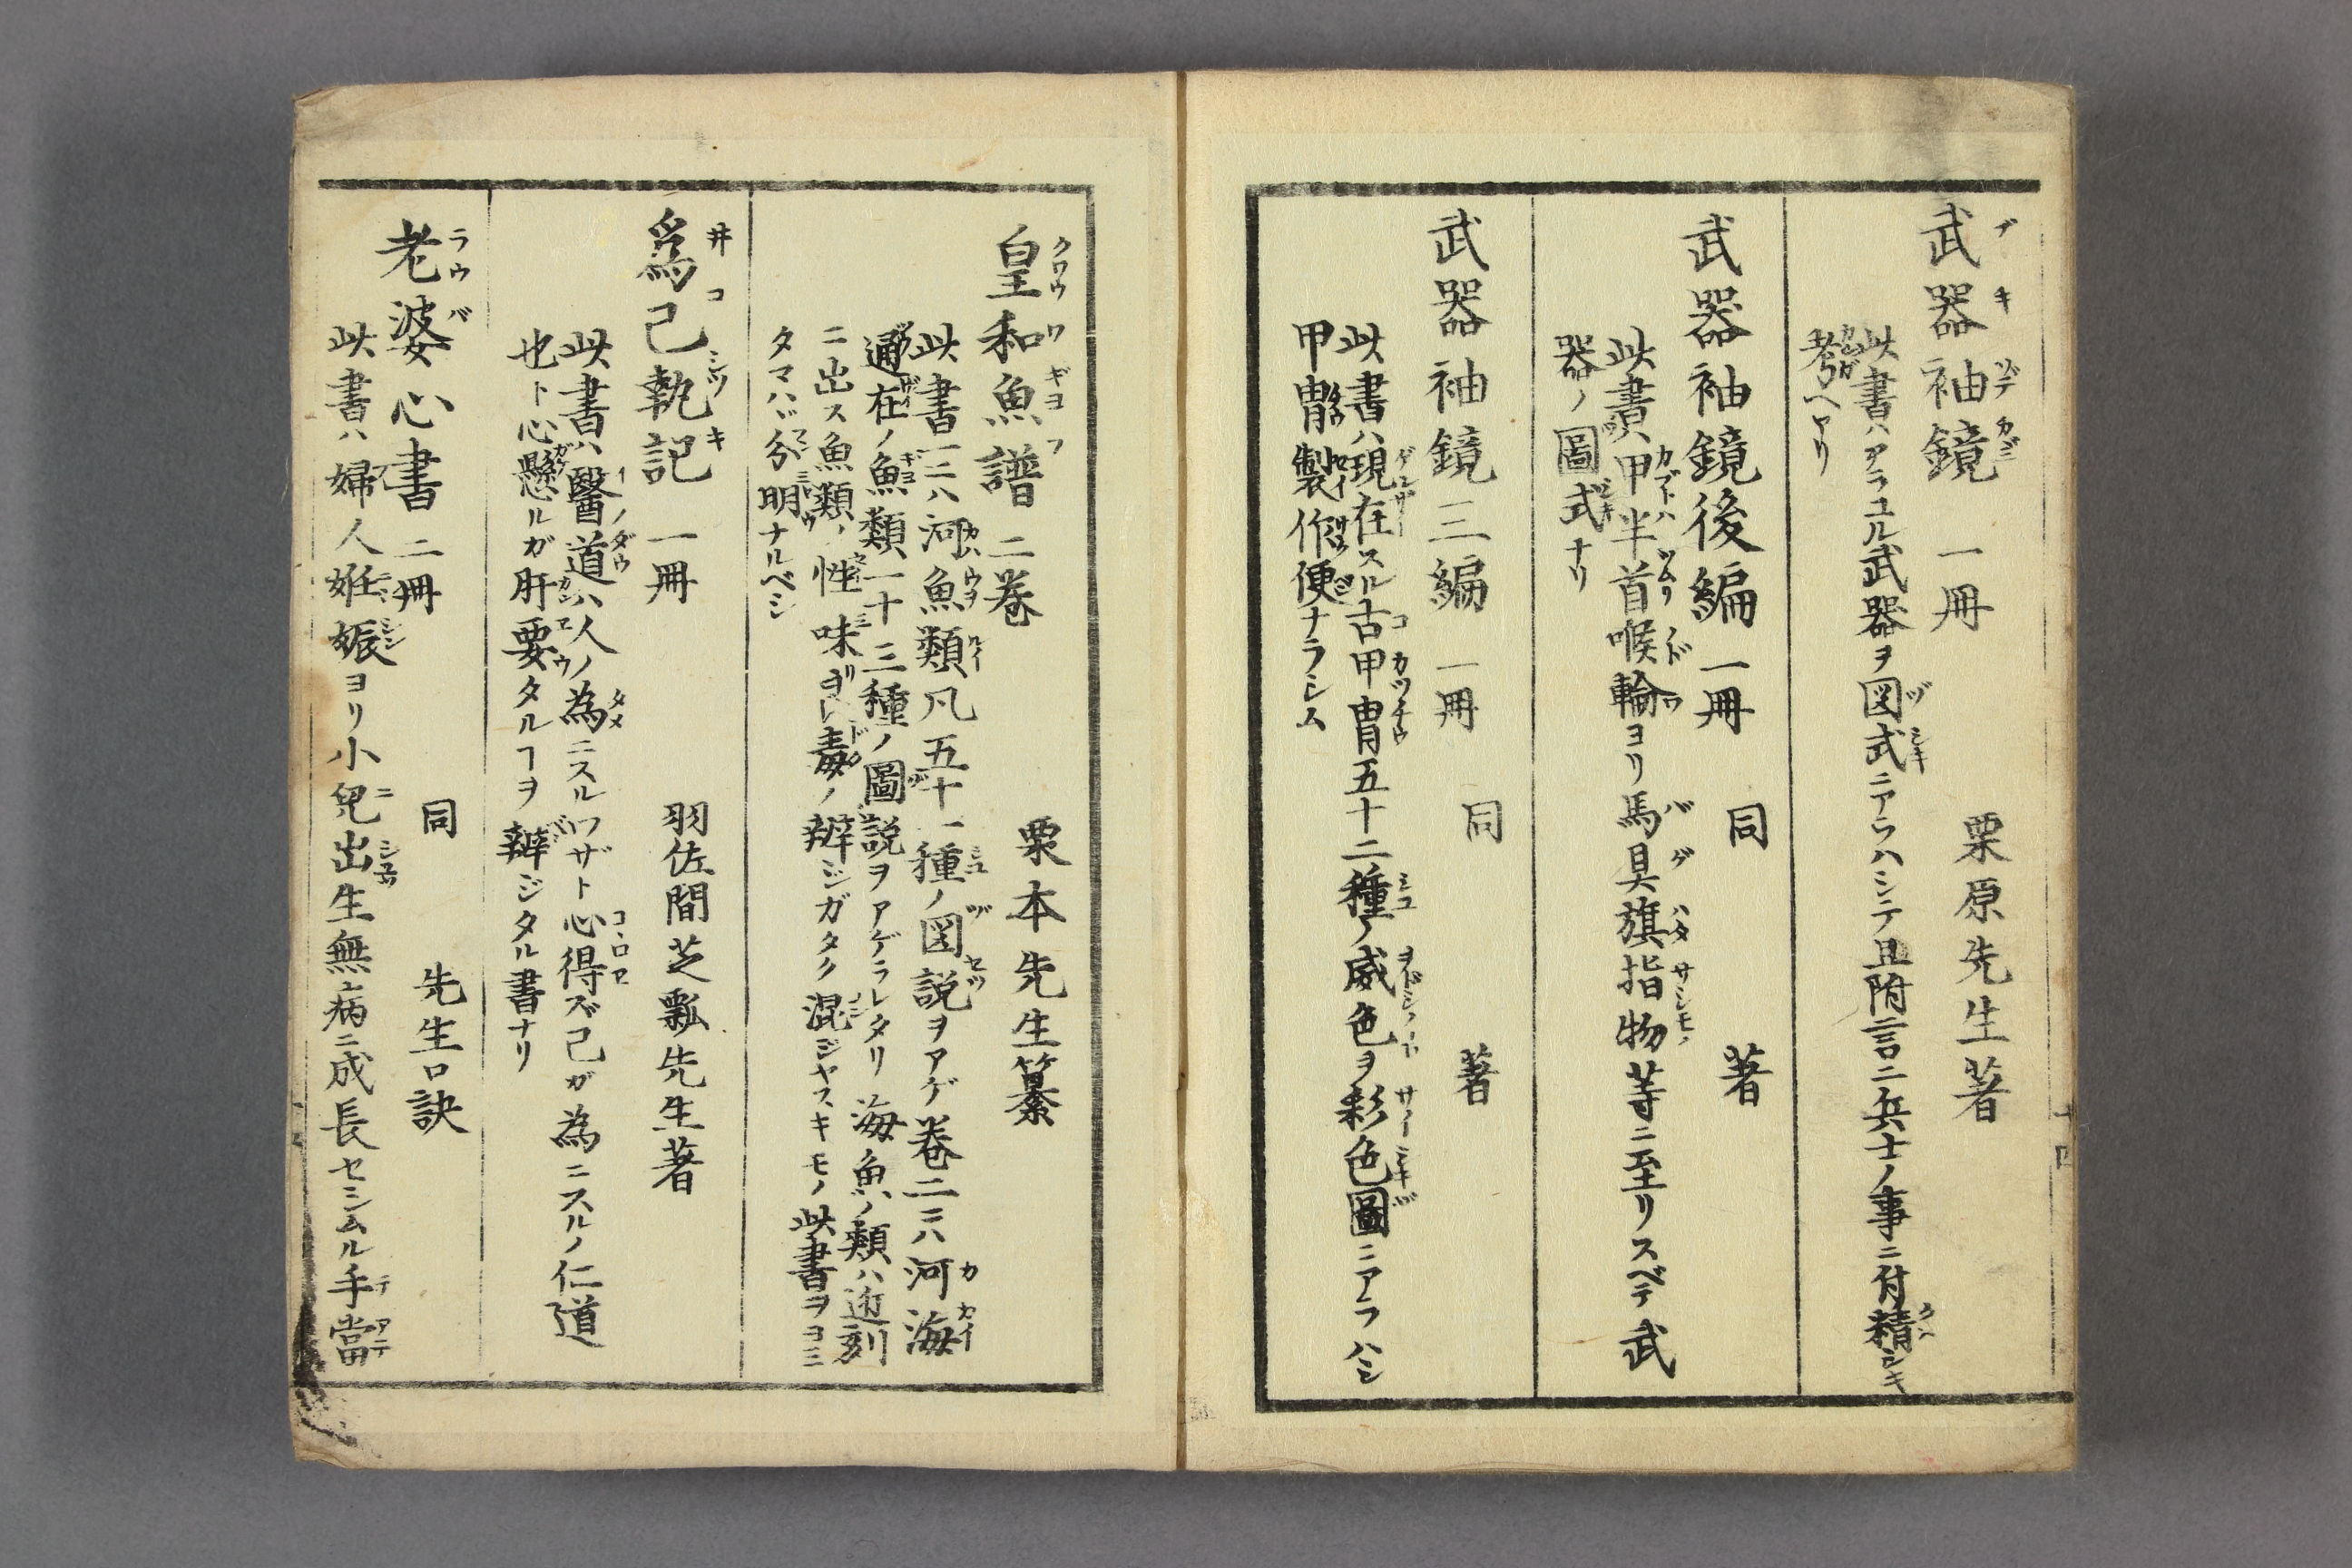 武器袖鏡 一冊 栗原先生著
此書ハアラユル武器ヲ図式ニアラハシテ且附言ニ兵士ノ事ニ付精シキ
考ヘアリ
武器袖鏡後編 一冊 同 著
此書ハ甲半首喉輪ヨリ馬具旗指物等ニ至リスベテ武
器ノ圖式ナリ
武器袖鏡三編 一冊 同 著
此書ハ現在スル古甲冑五十二種ノ威色ヲ彩色圖ニアラハシ
甲冑製作便ナラシム
皇和魚譜 二巻 栗本先生纂
此書一ニハ河魚類凡五十一種ノ図説ヲアゲ巻二ニハ河海
通在ノ魚類一十三種ノ圖説ヲアゲラレタリ海魚ノ類ハ近刻
ニ出ス魚類ノ性味ヨリ毒ノ辨ジガタク混ジヤスキモノ此書ヲヨミ
タマハヾ分明ナルベシ
爲己執記 一冊 羽佐間芝瓢先生著
此書ハ醫道ハ人ノ為ニスルワザト心得ズ己ガ為ニスルノ仁道
也ト心懸ルガ肝要タルヿヲ辨ジタル書ナリ
老婆心書 二冊 同 先生口訣
此書ハ婦人姙娠ヨリ小兒出生無病ニ成長セシムル手當